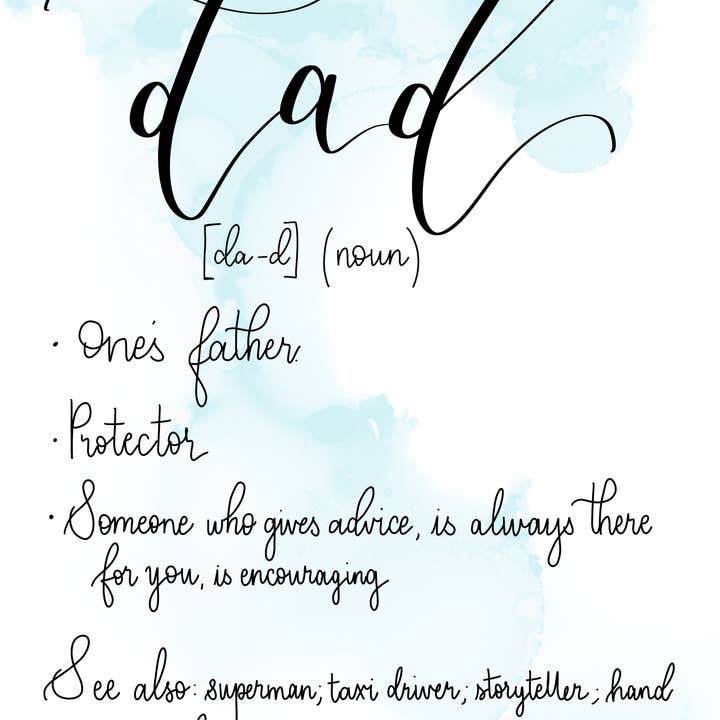 dad
[da-d] (noun)
· One's father.
· Protector
· Someone who gives advice, is always there
for you, is encouraging
See also: superman; taxi driver; storyteller; hand